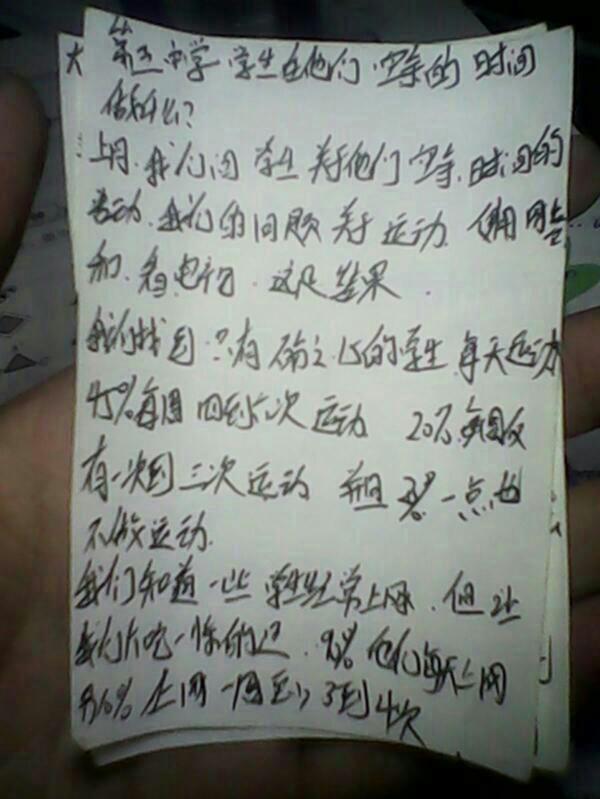 大 第五中学学生在他们空余的时间
做什么?
上月,我们问学生关于他们空余时间的
活动.我们的问题关于运动.使用网络
和.看电视.这是结果.
我们找到:只有百分之15的学生每天运动
45%每周四到六次运动 20%每周仅
有一次到三次运动 并且 一点也
不做运动.
我们知道一些学生经常上网.但让
我们大吃一惊的是.90%他们每天上网
另10%上网一周至少3到4次